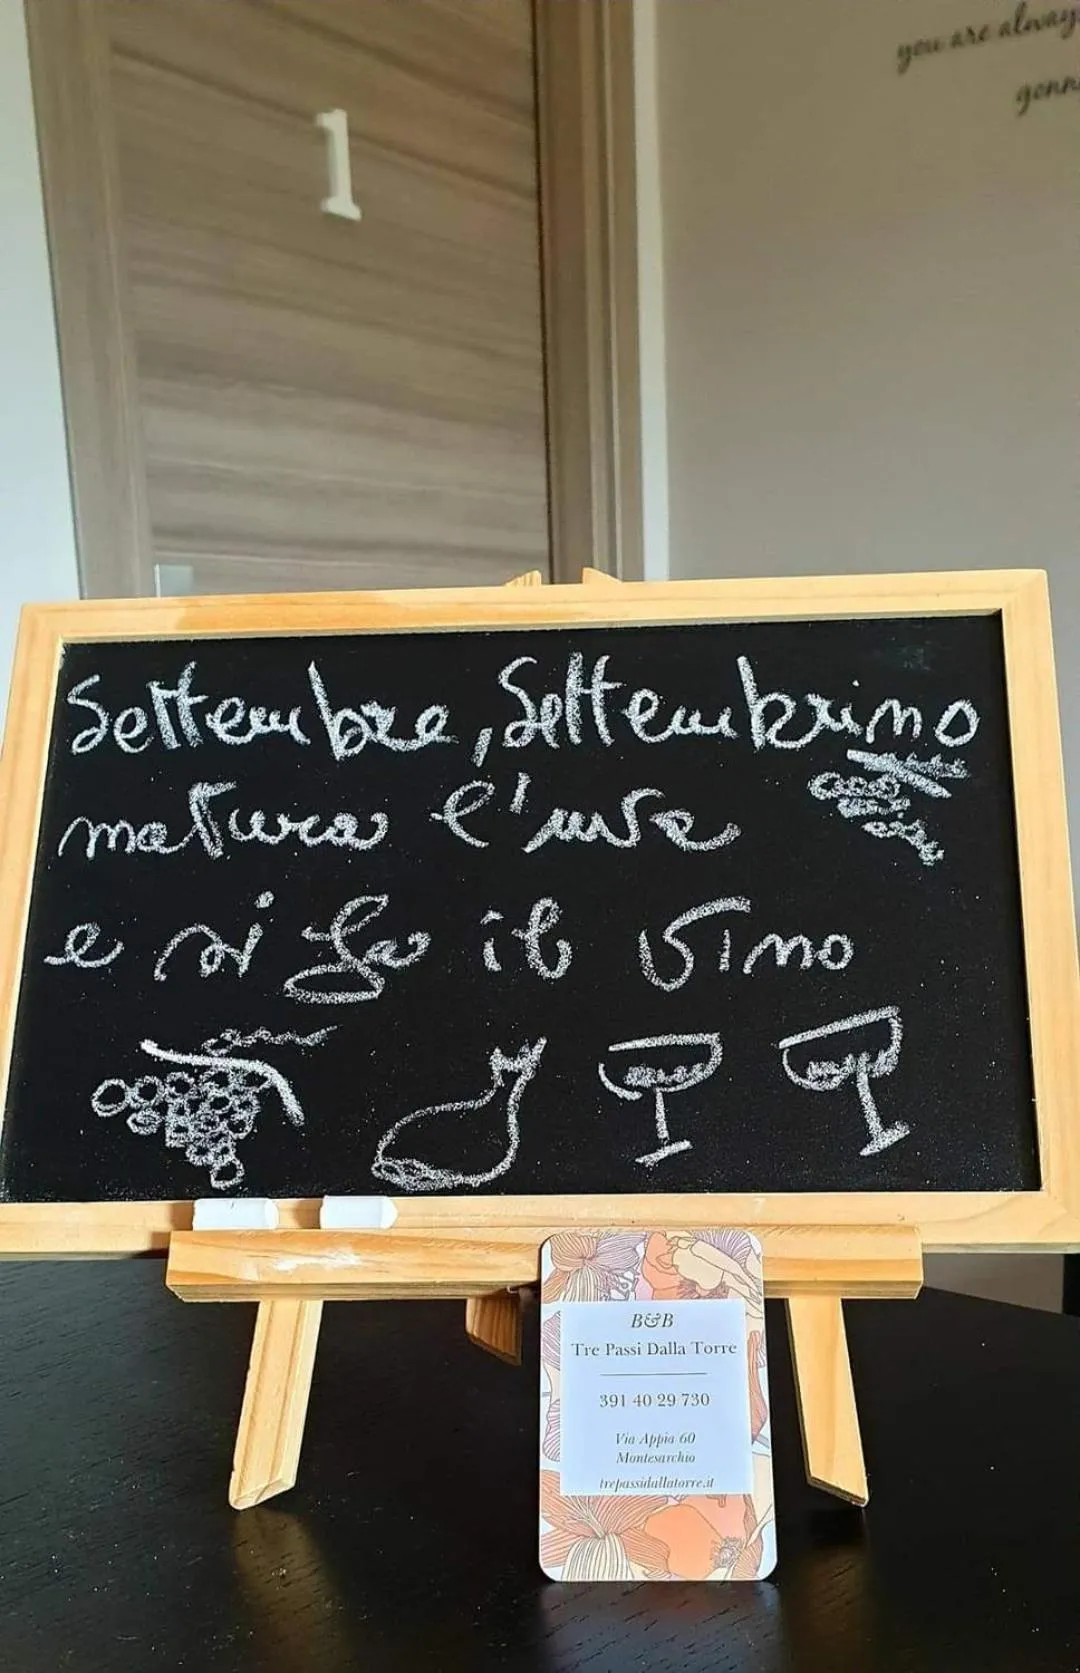 you are alway
gonn
1
Settembre, Settembrino
matura l'uva
e si fa il vino
B&B
Tre Passi Dalla Torre
391 40 29 730
Via Appia 60
Montesarchio
trepassidallatorre.it